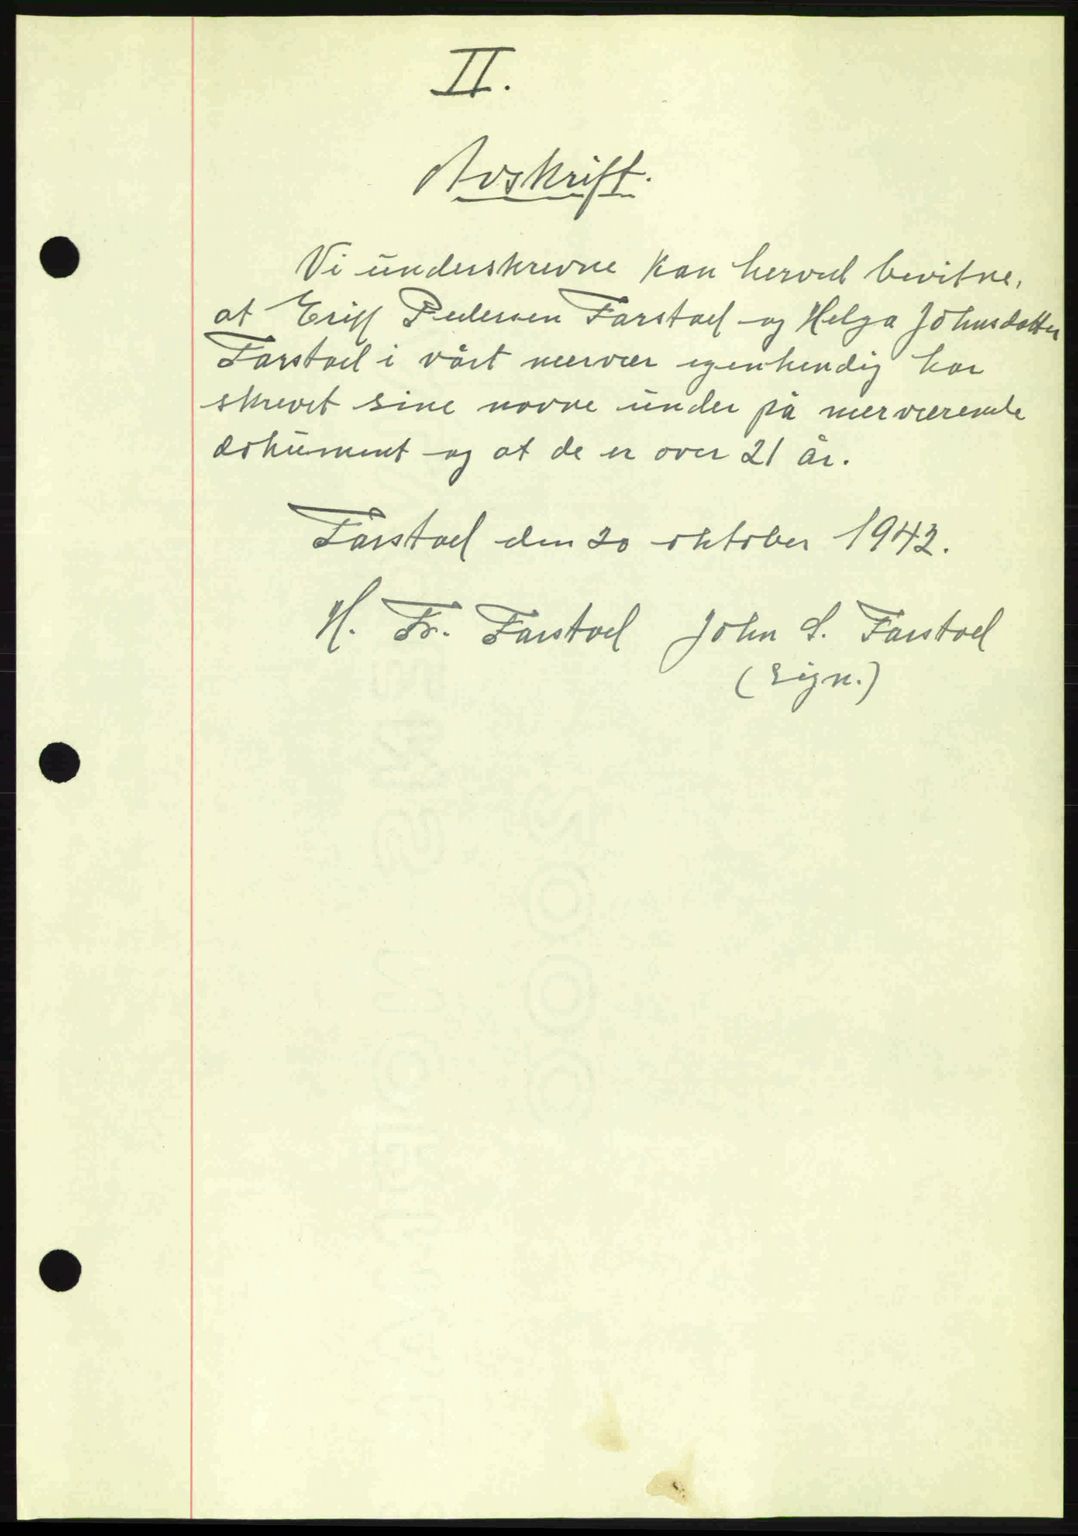 II.
Avskrift.
Vi underskrevne kan herved bevitne,
at Erik Pedersen Farstad og Helga Johnsdatter
Farstad i vårt nærvær egenhendig har
skrevet sine navne under på nærværende
dokument og at de er over 21 år.
Farstad den 20 oktober 1943.
H. Fr. Farstad John S. Farstad
(sign.)